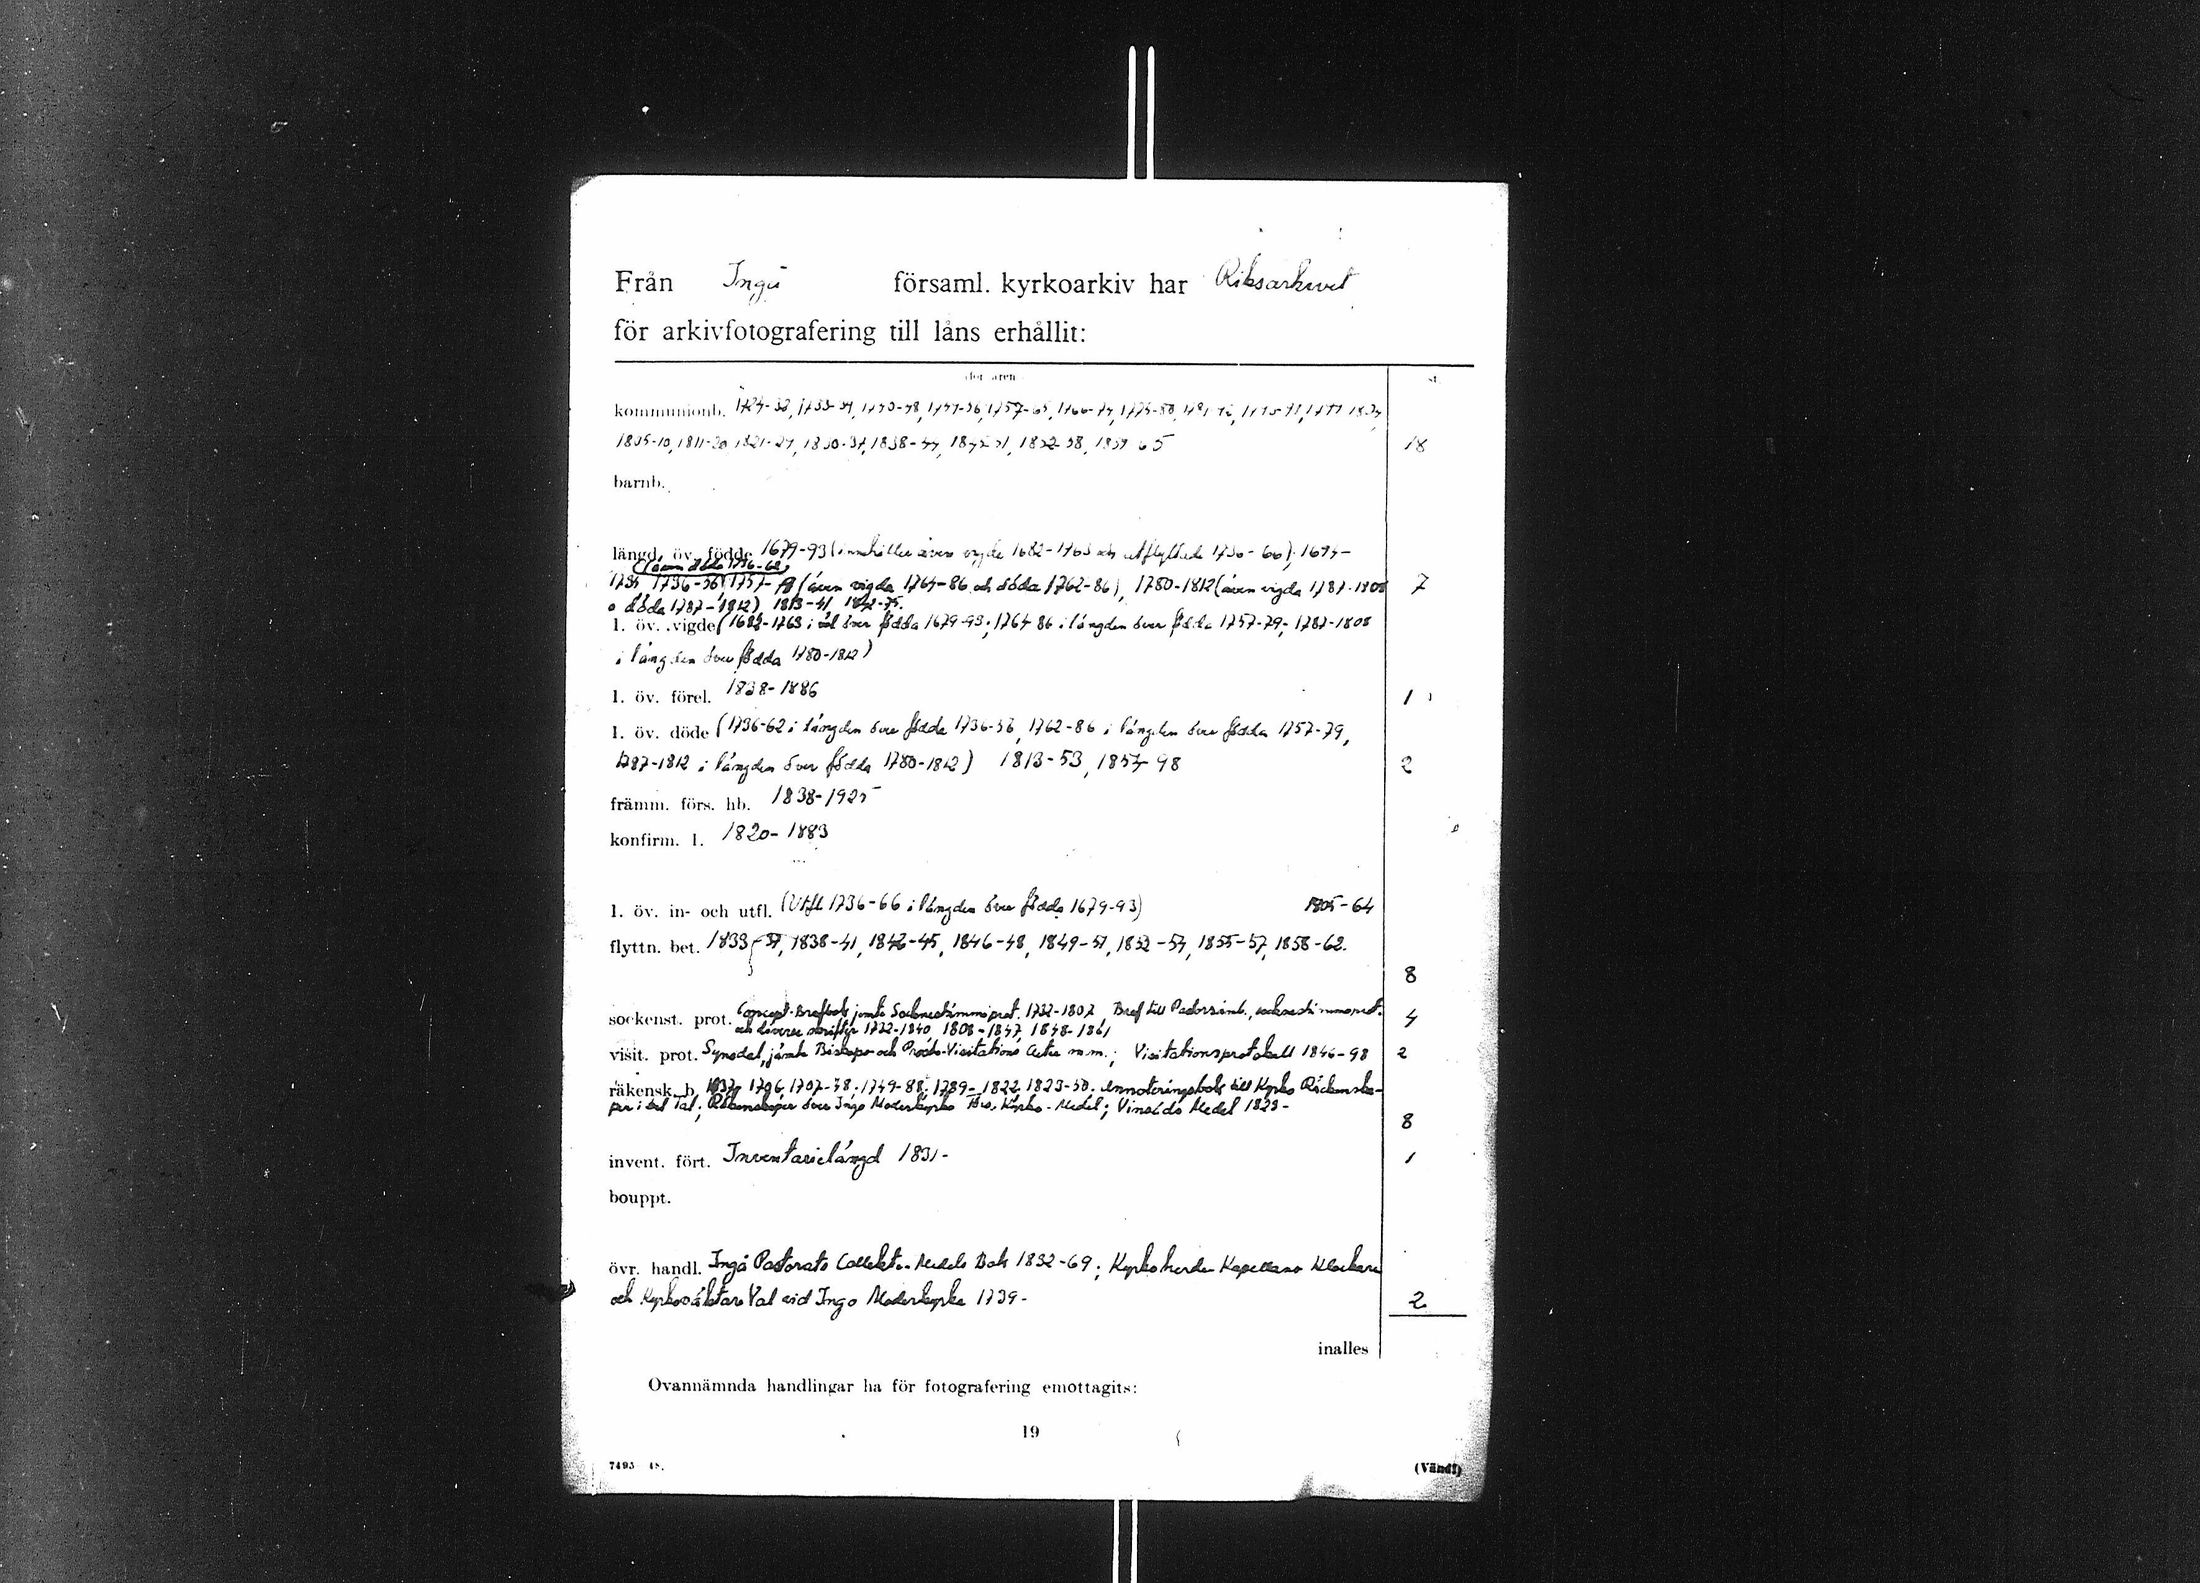 Från Ingå församl. kyrkoarkiv har Riksarkivet
för arkivfotografering till låns erhållit:
för åren st.
kommunionb. 1724-32, 1733-39, 1757-65, 1766-74,
1805-10, 1811-20, 1821-29, 1830-37, 1838-44, 1845-51, 1852-58, 1859-65 18
barnb.
längd. öv. födde 1679-93 (innehåller även vigde 1682-1763 och utflyttade 1736-66), 1694-
(även döda 1736-62)
1735, 1736-56, 1757-79 (även vigda 1764-86 och döda 1762-86), 1780-1812 (även vigda 1787-1808 7
o döda 1787-1812) 1813-41, 1842-75.
l. öv. vigde (1682-1763 i längd över födda 1679-93; 1764-86 i längden över födda 1757-79; 1787-1808
i längden över födda 1780-1812)
l. öv. förel. 1838-1886 1
l. öv. döde (1736-62 i längden över födda 1736-56, 1762-86 i längden över födda 1757-79,
1787-1812 i längden över födda 1780-1812) 1813-53, 1854-98 2
främm. förs. hb. 1838-1925
konfirm. l. 1820-1883
l. öv. in- och utfl. (Utfl. 1736-66 i längden över födda 1679-93) 1805-64
flyttn. bet. 1833-37, 1838-41, 1842-45, 1846-48, 1849-51, 1852-54, 1855-57, 1858-62.
8
sockenst. prot. Concept-Brefbok jämte Sockenstämmoprot. 1732-1807, Bref till Pastorsämb., sockenstämmoprot. 4
och diverse skrifter 1722-1840, 1808-1847, 1848-1861
visit. prot. Synodal, jämte Biskops- och Prosts-Visitations Acter m.m.; Visitationsprotokoll 1846-98 2
räkensk. b. 1706, 1707-48, 1749-88, 1789-1822, 1823-50. Annoteringsbok till Kyrko Räkenska-
per i det tal; Räkenskaper över Ingå Moderkyrko Kyrko-Medel; Vinsäds Medel 1823-
8
invent. fört. Inventarielängd 1831- 1
bouppt.
övr. handl. Ingå Pastorats Collekt-Medels Bok 1832-69; Kyrkoherde Kapellans Klockare
och Kyrkovaktare Val vid Ingå Moderkyrka 1739- 2
inalles
Ovannämnda handlingar ha för fotografering emottagits:
19
7495 48.
(Vänd!)